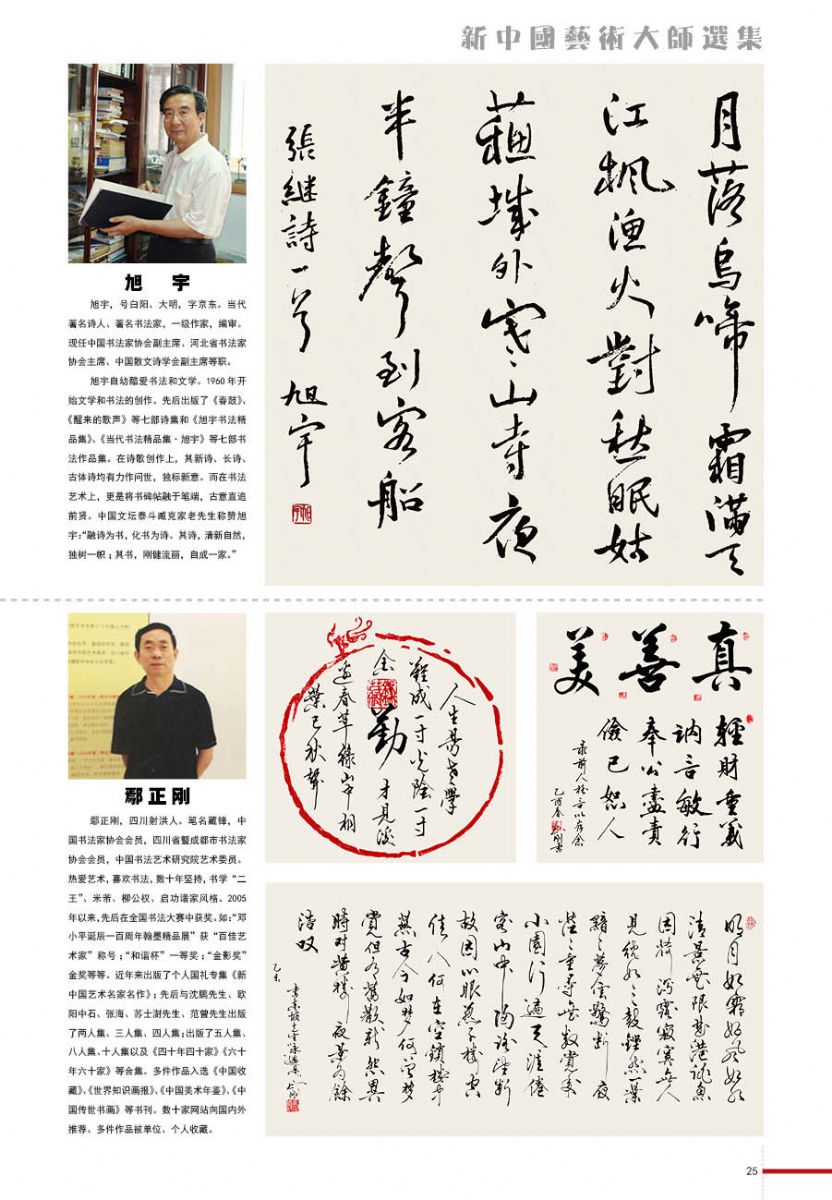 新中國藝術大師選集
旭 宇
旭宇，号白阳、大明，字京东。当代
著名诗人、著名书法家，一级作家，编审。
现任中国书法家协会副主席、河北省书法家
协会主席、中国散文诗学会副主席等职。
旭宇自幼酷爱书法和文学。1960年开
始文学和书法的创作。先后出版了《春鼓》、
《醒来的歌声》等七部诗集和《旭宇书法精
品集》、《当代书法精品集·旭宇》等七部书
法作品集。在诗歌创作上，其新诗、长诗、
古体诗均有力作问世，独标新意。而在书法
艺术上，更是将书碑帖融于笔端，古意直追
前贤。中国文坛泰斗臧克家老先生称赞旭
宇：“融诗为书，化书为诗。其诗，清新自然，
独树一帜；其书，刚健流丽，自成一家。”
月落烏啼霜滿天
江楓漁火對愁眠姑
蘇城外寒山寺夜
半鐘聲到客船
張继詩一首 旭宇
鄢正刚
鄢正刚，四川射洪人。笔名藏锋，中
国书法家协会会员，四川省暨成都市书法家
协会会员，中国书法艺术研究院艺术委员。
热爱艺术，喜欢书法，数十年坚持，书学“二
王”、米芾、柳公权、启功诸家风格。2005
年以来，先后在全国书法大赛中获奖。如：“邓
小平诞辰一百周年翰墨精品展”获“百佳艺
术家”称号；“和谐杯”一等奖；“金影奖”
金奖等等。近年来出版了个人国礼专集《新
中国艺术名家名作》；先后与沈鹏先生、欧
阳中石、张海、苏士澍先生、范曾先生出版
了两人集、三人集、四人集；出版了五人集、
八人集、十人集以及《四十年四十家》《六十
年六十家》等合集。多件作品入选《中国收
藏》、《世界知识画报》、《中国美术年鉴》、《中
国传世书画》等书刊。数十家网站向国内外
推荐、多件作品被单位、个人收藏。
勤
真善美
輕財重義
訥言敏行
奉公盡責
儉己恕人
明月如霜好風如水
清景無限曲港跳魚
圓荷瀉露寂寞無人
見紞如三鼓鏗然一葉
黯黯夢雲驚斷夜
茫茫重尋無處覺來
小園行遍天涯倦
客山中歸路望斷
故園心眼燕子樓空
佳人何在空鎖樓中
燕古今如夢何曾夢
覺但有舊歡新怨異
時對黃樓夜景為余
浩嘆
25